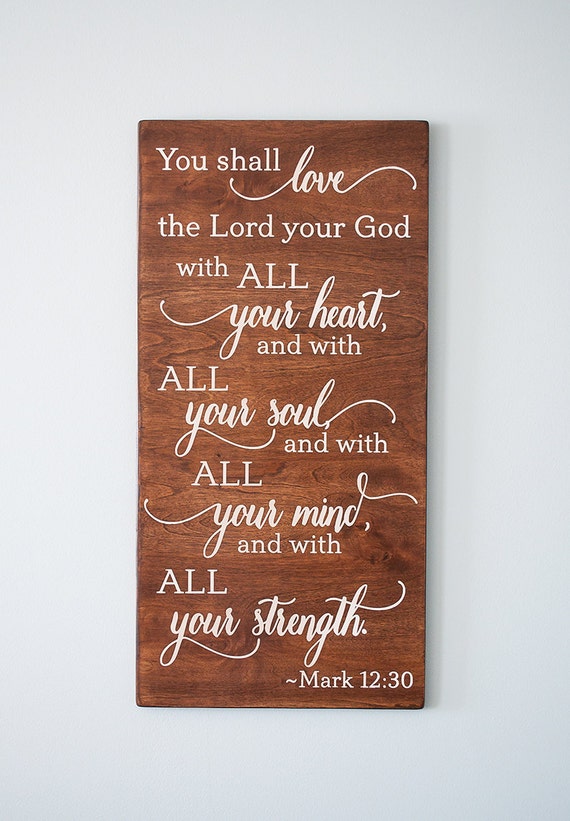 You shall love
the Lord your God
with ALL
your heart,
and with
ALL
your soul,
and with
ALL
your mind,
and with
ALL
your strength.
~Mark 12:30